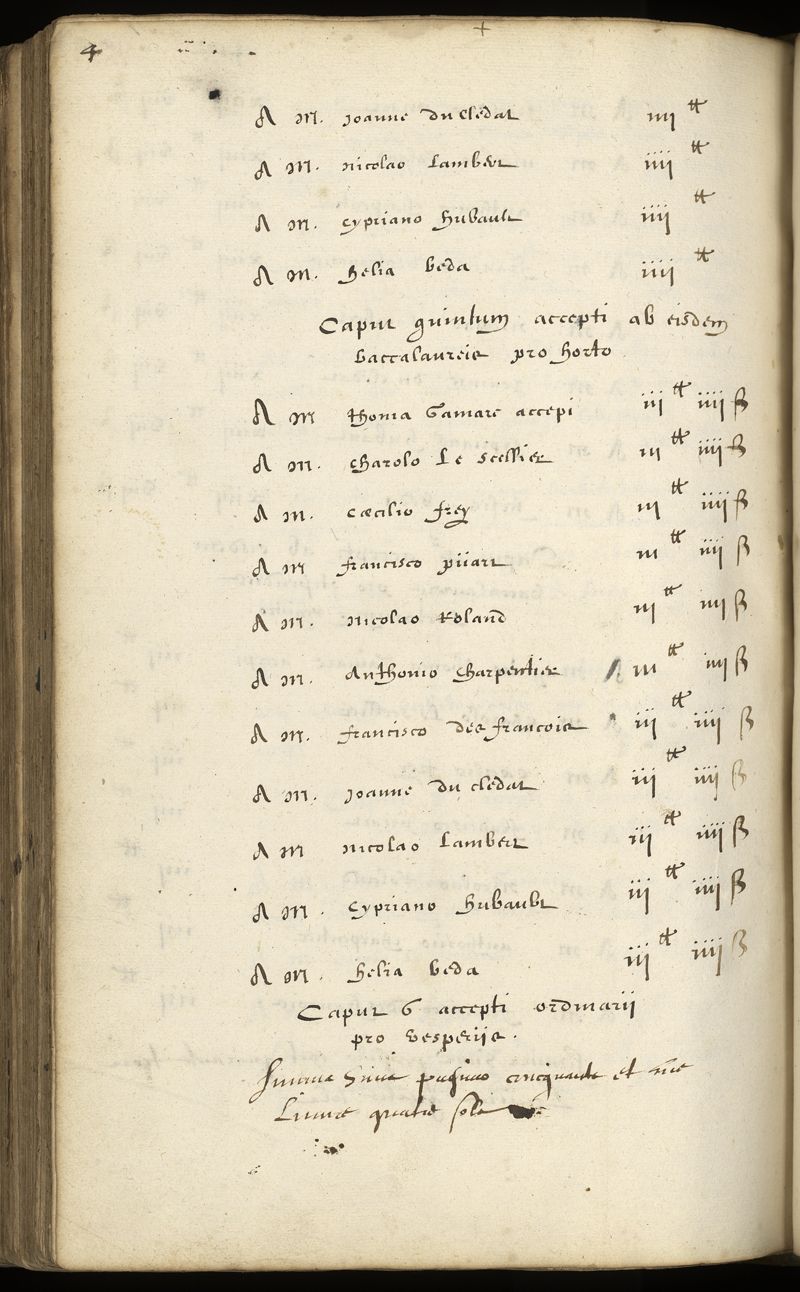 4
A M. Joanne du Cledat iiij ₶
A M. Nicolao Lambert iiij ₶
A M. Cypriano Hubault iiij ₶
A M. Helia Beda iiij ₶
Caput quintum accepti ab eisdem
baccalaureis pro horto
A M Thoma Gamare accepi iij ₶ iiij ß
A M. Charolo Le Scellier iij ₶ iiij ß
A M. Cæcilio Frey iij ₶ iiij ß
A M Francisco Piiart iij ₶ iiij ß
A M. Nicolao Roland iij ₶ iiij ß
A M. Anthonio Charpentier iij ₶ iiij ß
A M. Francisco des francois iij ₶ iiij ß
A M. Joanne du cledat iij ₶ iiij ß
A M Nicolao Lambert iij ₶ iiij ß
A M. Cypriano Hubault iij ₶ iiij ß
A M. Helia Beda iij ₶ iiij ß
Caput 6 accepti ordinarii
pro vesperiis.
Summa cinquante et
Livres quatre solz